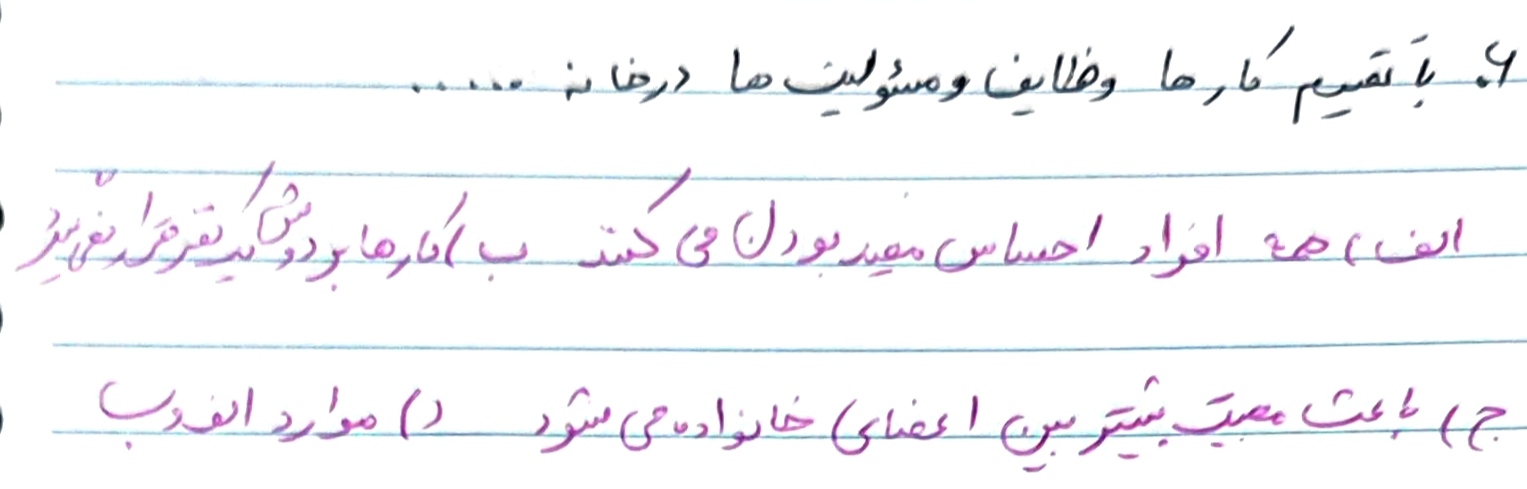 ۶. با تقسیم کار ها وظایف و مسئولیت ها در خانه .....
الف) همه افراد احساس مفید بودن می کنند ب) کارها بر دوش یک نفر قرار نمی گیرد
ج) باعث محبت بیشتر بین اعضای خانواده می شود د) موارد الف و ب